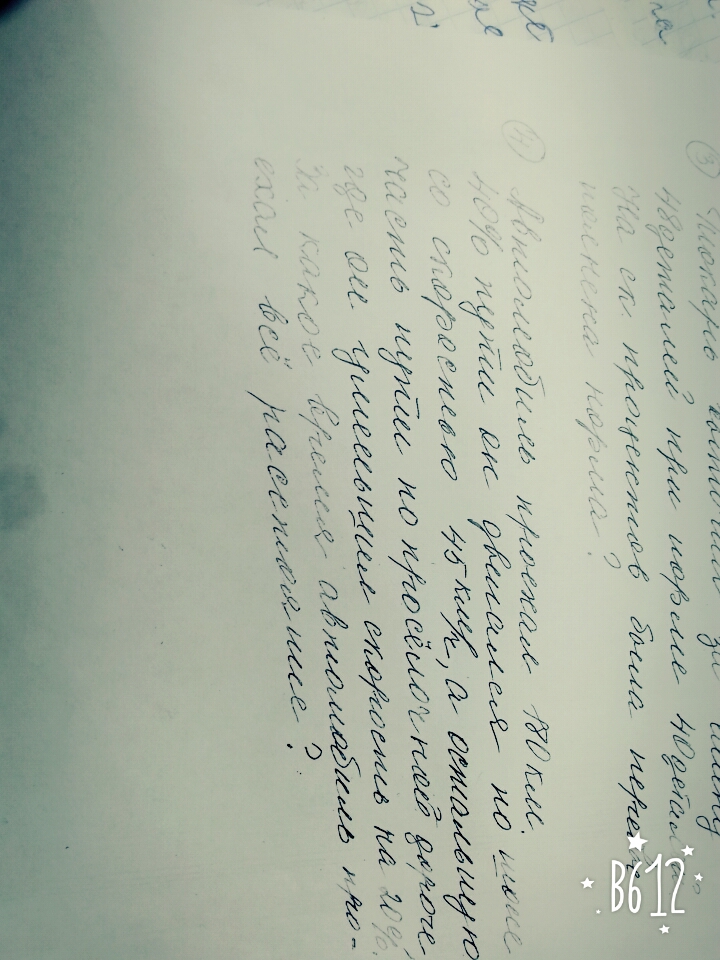 ③ Токарь выточил за смену
48 деталей при норме 40 детал
На ск. процентов была перевы
полнена норма?
④ Автомобиль проехал 180 км.
40% пути он двигался по шоссе
со скоростью 45 км/ч, а остальную
часть пути по просёлочной дороге
где он уменьшил скорость на 20%.
За какое время автомобиль про-
ехал всё расстояние?
B612